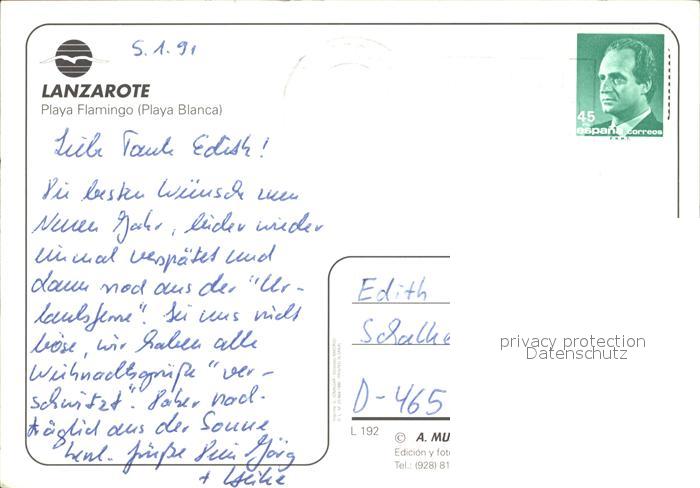 5.1.91
LANZAROTE
Playa Flamingo (Playa Blanca)
45
españa correos
Liebe Tante Edith!
Die besten Wünsche zum
Neuen Jahr, leider wieder
einmal verspätet und
dann noch aus der "Ur-
laubsferne". Sei uns nicht
böse, wir haben alle
Weihnachtsgrüße "ver-
schwitzt". Daher nach-
träglich aus der Sonne
herzl. Grüße Dein Jörg
+ Heike
Edith
Schalke
D-465
privacy protection
Datenschutz
L 192
© A. MU
Edición y foto
Tel.: (928) 81